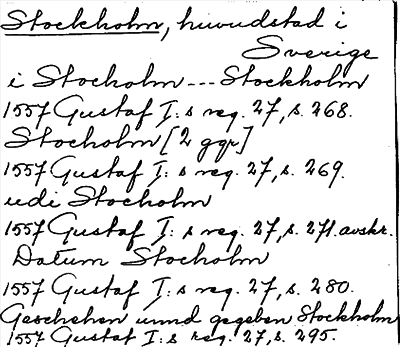 Stockholm, huvudstad i
Sverige
i Stocholm --- Stockholm
1557 Gustaf I:s reg. 27, s. 268.
Stocholm [2 ggr]
1557 Gustaf I:s reg. 27, s. 269.
udi Stocholm
1557 Gustaf I:s reg. 27, s. 271. avskr.
Datum Stocholm
1557 Gustaf I:s reg. 27, s. 280.
Geschehen unnd gegeben Stockholm
1557 Gustaf I:s reg. 27, s. 295.